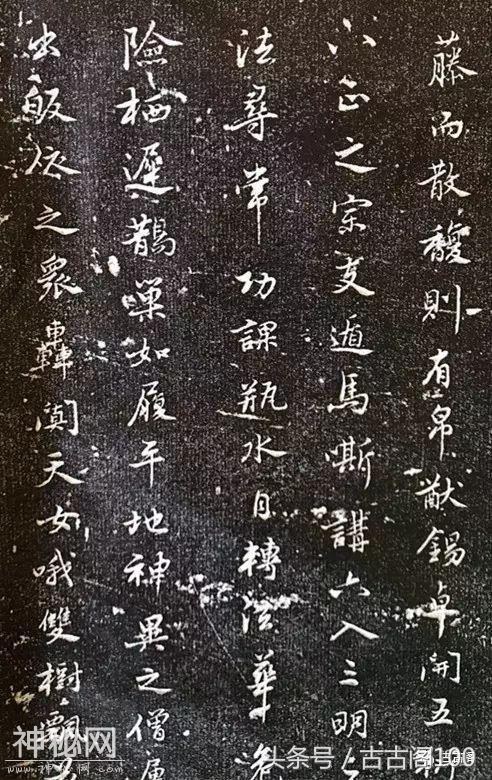 藤而散馥則有帛猷錫卓開五
正之宗支遁馬嘶講六入三明
法尋常功課瓶水日轉法華
險栖遲鵲巢如履平地神異之僧
出皈依之眾轟闐天女哦雙樹飄
神秘网
头条号/古古阁100